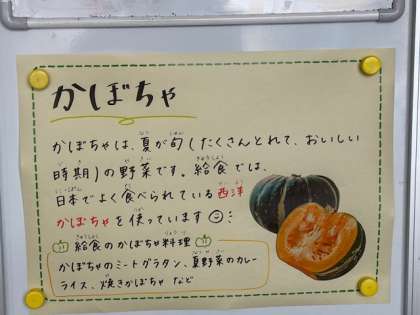 かぼちゃ
かぼちゃは、夏が旬(たくさんとれて、おいしい
時期)の野菜です。給食では、
日本でよく食べられている西洋
かぼちゃを使っています
給食のかぼちゃ料理
かぼちゃのミートグラタン、夏野菜のカレー
ライス、焼きかぼちゃ など